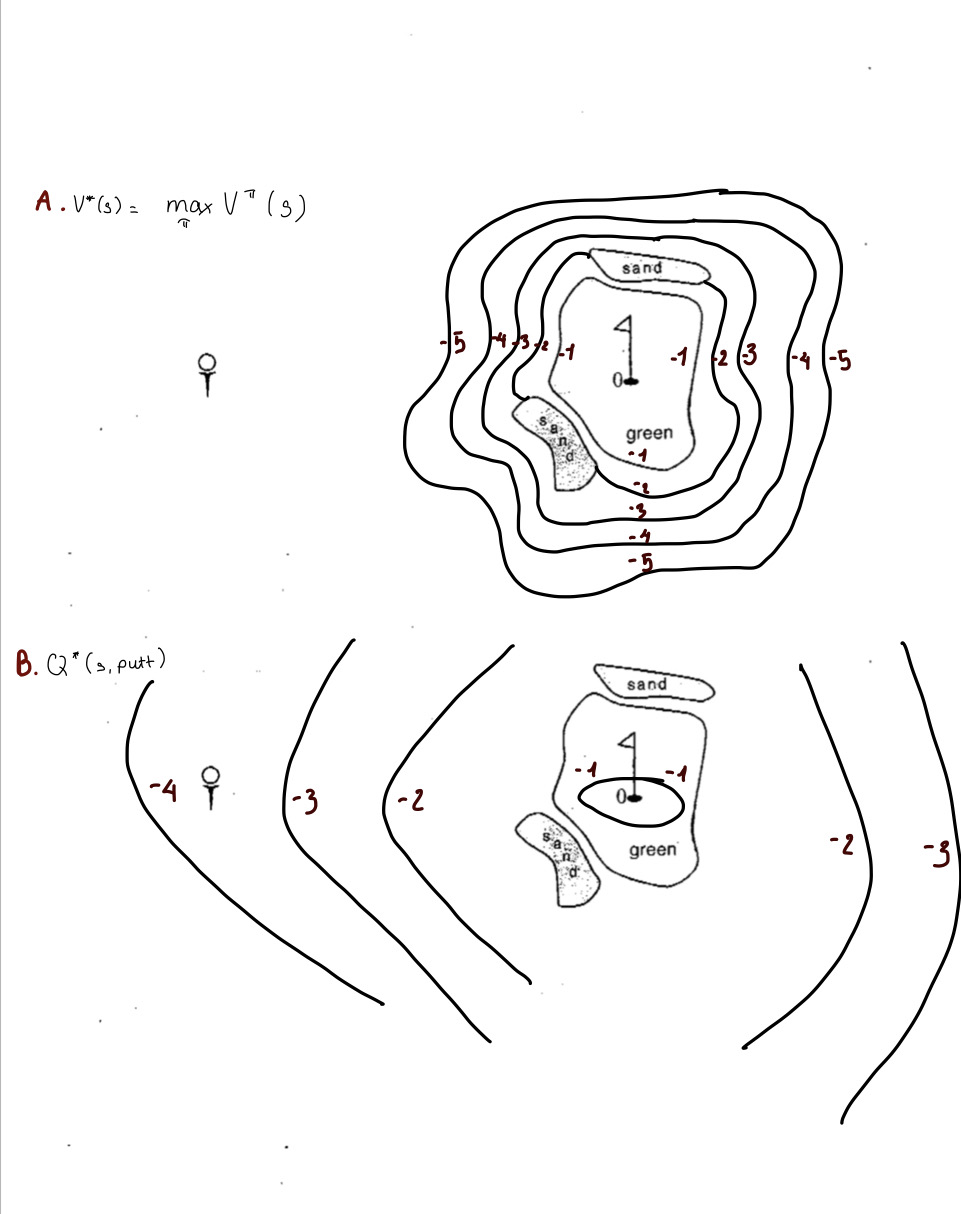 A. V*(s) = max V^π (s)
π
sand
-5 -4 -3 -2 -1 -1 -2 -3 -4 -5
0
s
a
n
d
green
-1
-2
-3
-4
-5
B. Q*(s, putt)
sand
-1 -1
-4 -3 -2 0
s
a
n
d
green
-2 -3